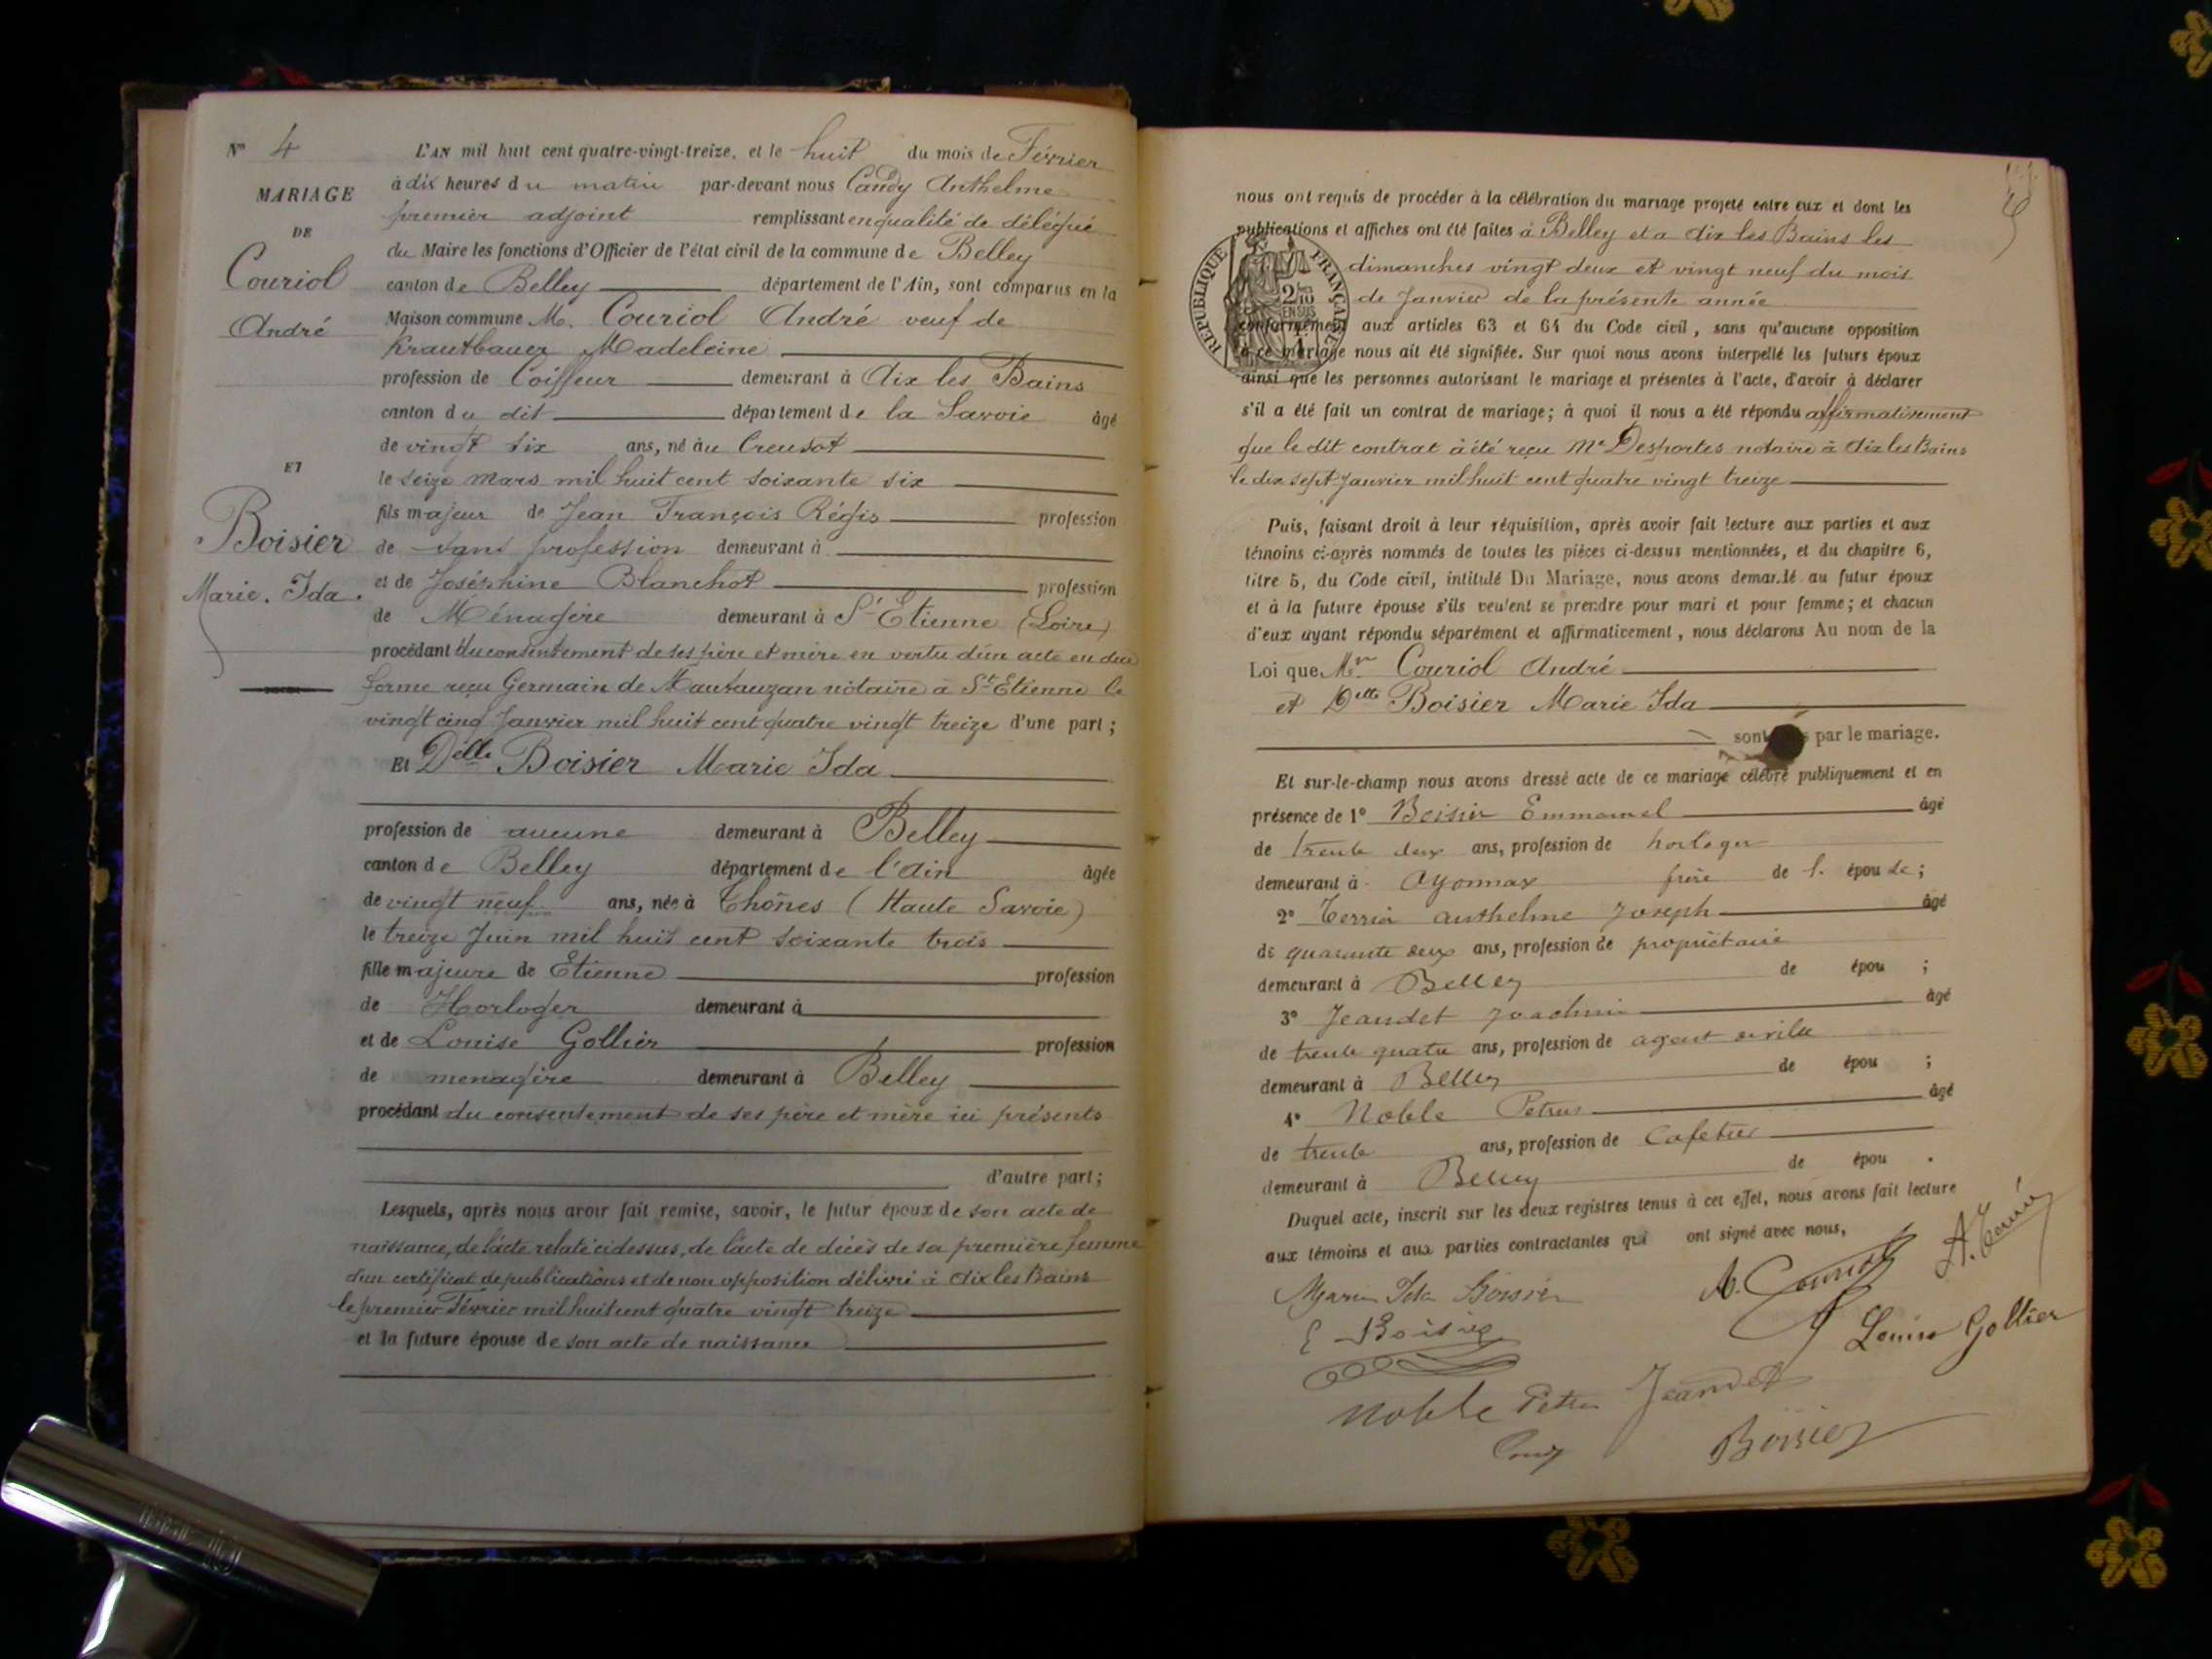 N° 4
MARIAGE
DE
Couriol
André
ET
Boisier
Marie. Ida.
L'AN mil huit cent quatre-vingt-treize, et le huit du mois de Février
à dix heures du matin par-devant nous Candy Anthelme
premier adjoint remplissant en qualité de délégué
du Maire les fonctions d'Officier de l'état civil de la commune de Belley
canton de Belley département de l'Ain, sont comparus en la
Maison commune M. Couriol André veuf de
Krautbauer Madeleine
profession de Coiffeur demeurant à Aix les Bains
canton du dit département de la Savoie âgé
de vingt six ans, né au Creusot
le seize mars mil huit cent soixante six
fils majeur de Jean François Régis profession
de sans profession demeurant à
et de Joséphine Blanchot profession
de Ménagère demeurant à St Etienne (Loire)
procédant du consentement de ses père et mère en vertu d'un acte en due
forme reçu Germain de Mautauzan notaire à St Etienne le
vingt cinq Janvier mil huit cent quatre vingt treize d'une part;
Et Delle Boisier Marie Ida
profession de aucune demeurant à Belley
canton de Belley département de l'Ain âgée
de vingt neuf ans, née à Thônes (Haute Savoie)
le treize Juin mil huit cent soixante trois
fille majeure de Etienne profession
de Horloger demeurant à
et de Louise Gollier profession
de menagère demeurant à Belley
procédant du consentement de ses père et mère ici présents
d'autre part;
Lesquels, après nous avoir fait remise, savoir, le futur époux de son acte de
naissance, de l'acte relaté cidessus, de l'acte de décès de sa première femme
d'un certificat de publications et de non opposition délivré à Aix les Bains
le premier Février mil huit cent quatre vingt treize
et la future épouse de son acte de naissance
nous ont requis de procéder à la célébration du mariage projeté entre eux et dont les
publications et affiches ont été faites à Belley et a Aix les Bains les
dimanches vingt deux et vingt neuf du mois
de Janvier de la présente année
REPUBLIQUE FRANÇAISE
2/10
EN SUS
conformément aux articles 63 et 64 du Code civil, sans qu'aucune opposition
à ce mariage nous ait été signifiée. Sur quoi nous avons interpellé les futurs époux
ainsi que les personnes autorisant le mariage et présentes à l'acte, d'avoir à déclarer
s'il a été fait un contrat de mariage; à quoi il nous a été répondu affirmativement
que le dit contrat à été reçu Me Desportes notaire à Aix les Bains
le dix sept Janvier mil huit cent quatre vingt treize
Puis, faisant droit à leur réquisition, après avoir fait lecture aux parties et aux
témoins ci-après nommés de toutes les pièces ci-dessus mentionnées, et du chapitre 6,
titre 5, du Code civil, intitulé Du Mariage, nous avons demandé au futur époux
et à la future épouse s'ils veulent se prendre pour mari et pour femme; et chacun
d'eux ayant répondu séparément et affirmativement, nous déclarons Au nom de la
Loi que Mr Couriol André
et Delle Boisier Marie Ida
sont par le mariage.
Et sur-le-champ nous avons dressé acte de ce mariage célébré publiquement et en
présence de 1° Boisier Emmanuel âgé
de trente deux ans, profession de horloger
demeurant à Oyonnax frère de l. épouse;
2° Terrier Anthelme Joseph âgé
de quarante deux ans, profession de propriétaire
demeurant à Belley de épou ;
3° Jeandet Joachim âgé
de trente quatre ans, profession de agent de ville
demeurant à Belley de épou ;
4° Noble Petrus âgé
de trente ans, profession de Cafetier
demeurant à Belley de épou .
Duquel acte, inscrit sur les deux registres tenus à cet effet, nous avons fait lecture
aux témoins et aux parties contractantes qui ont signé avec nous,
A. Terrier
Marie Ida Boisier A. Couriol
E Boisier Louise Gollier
Noble Petrus Jeandet
Candy Boisier